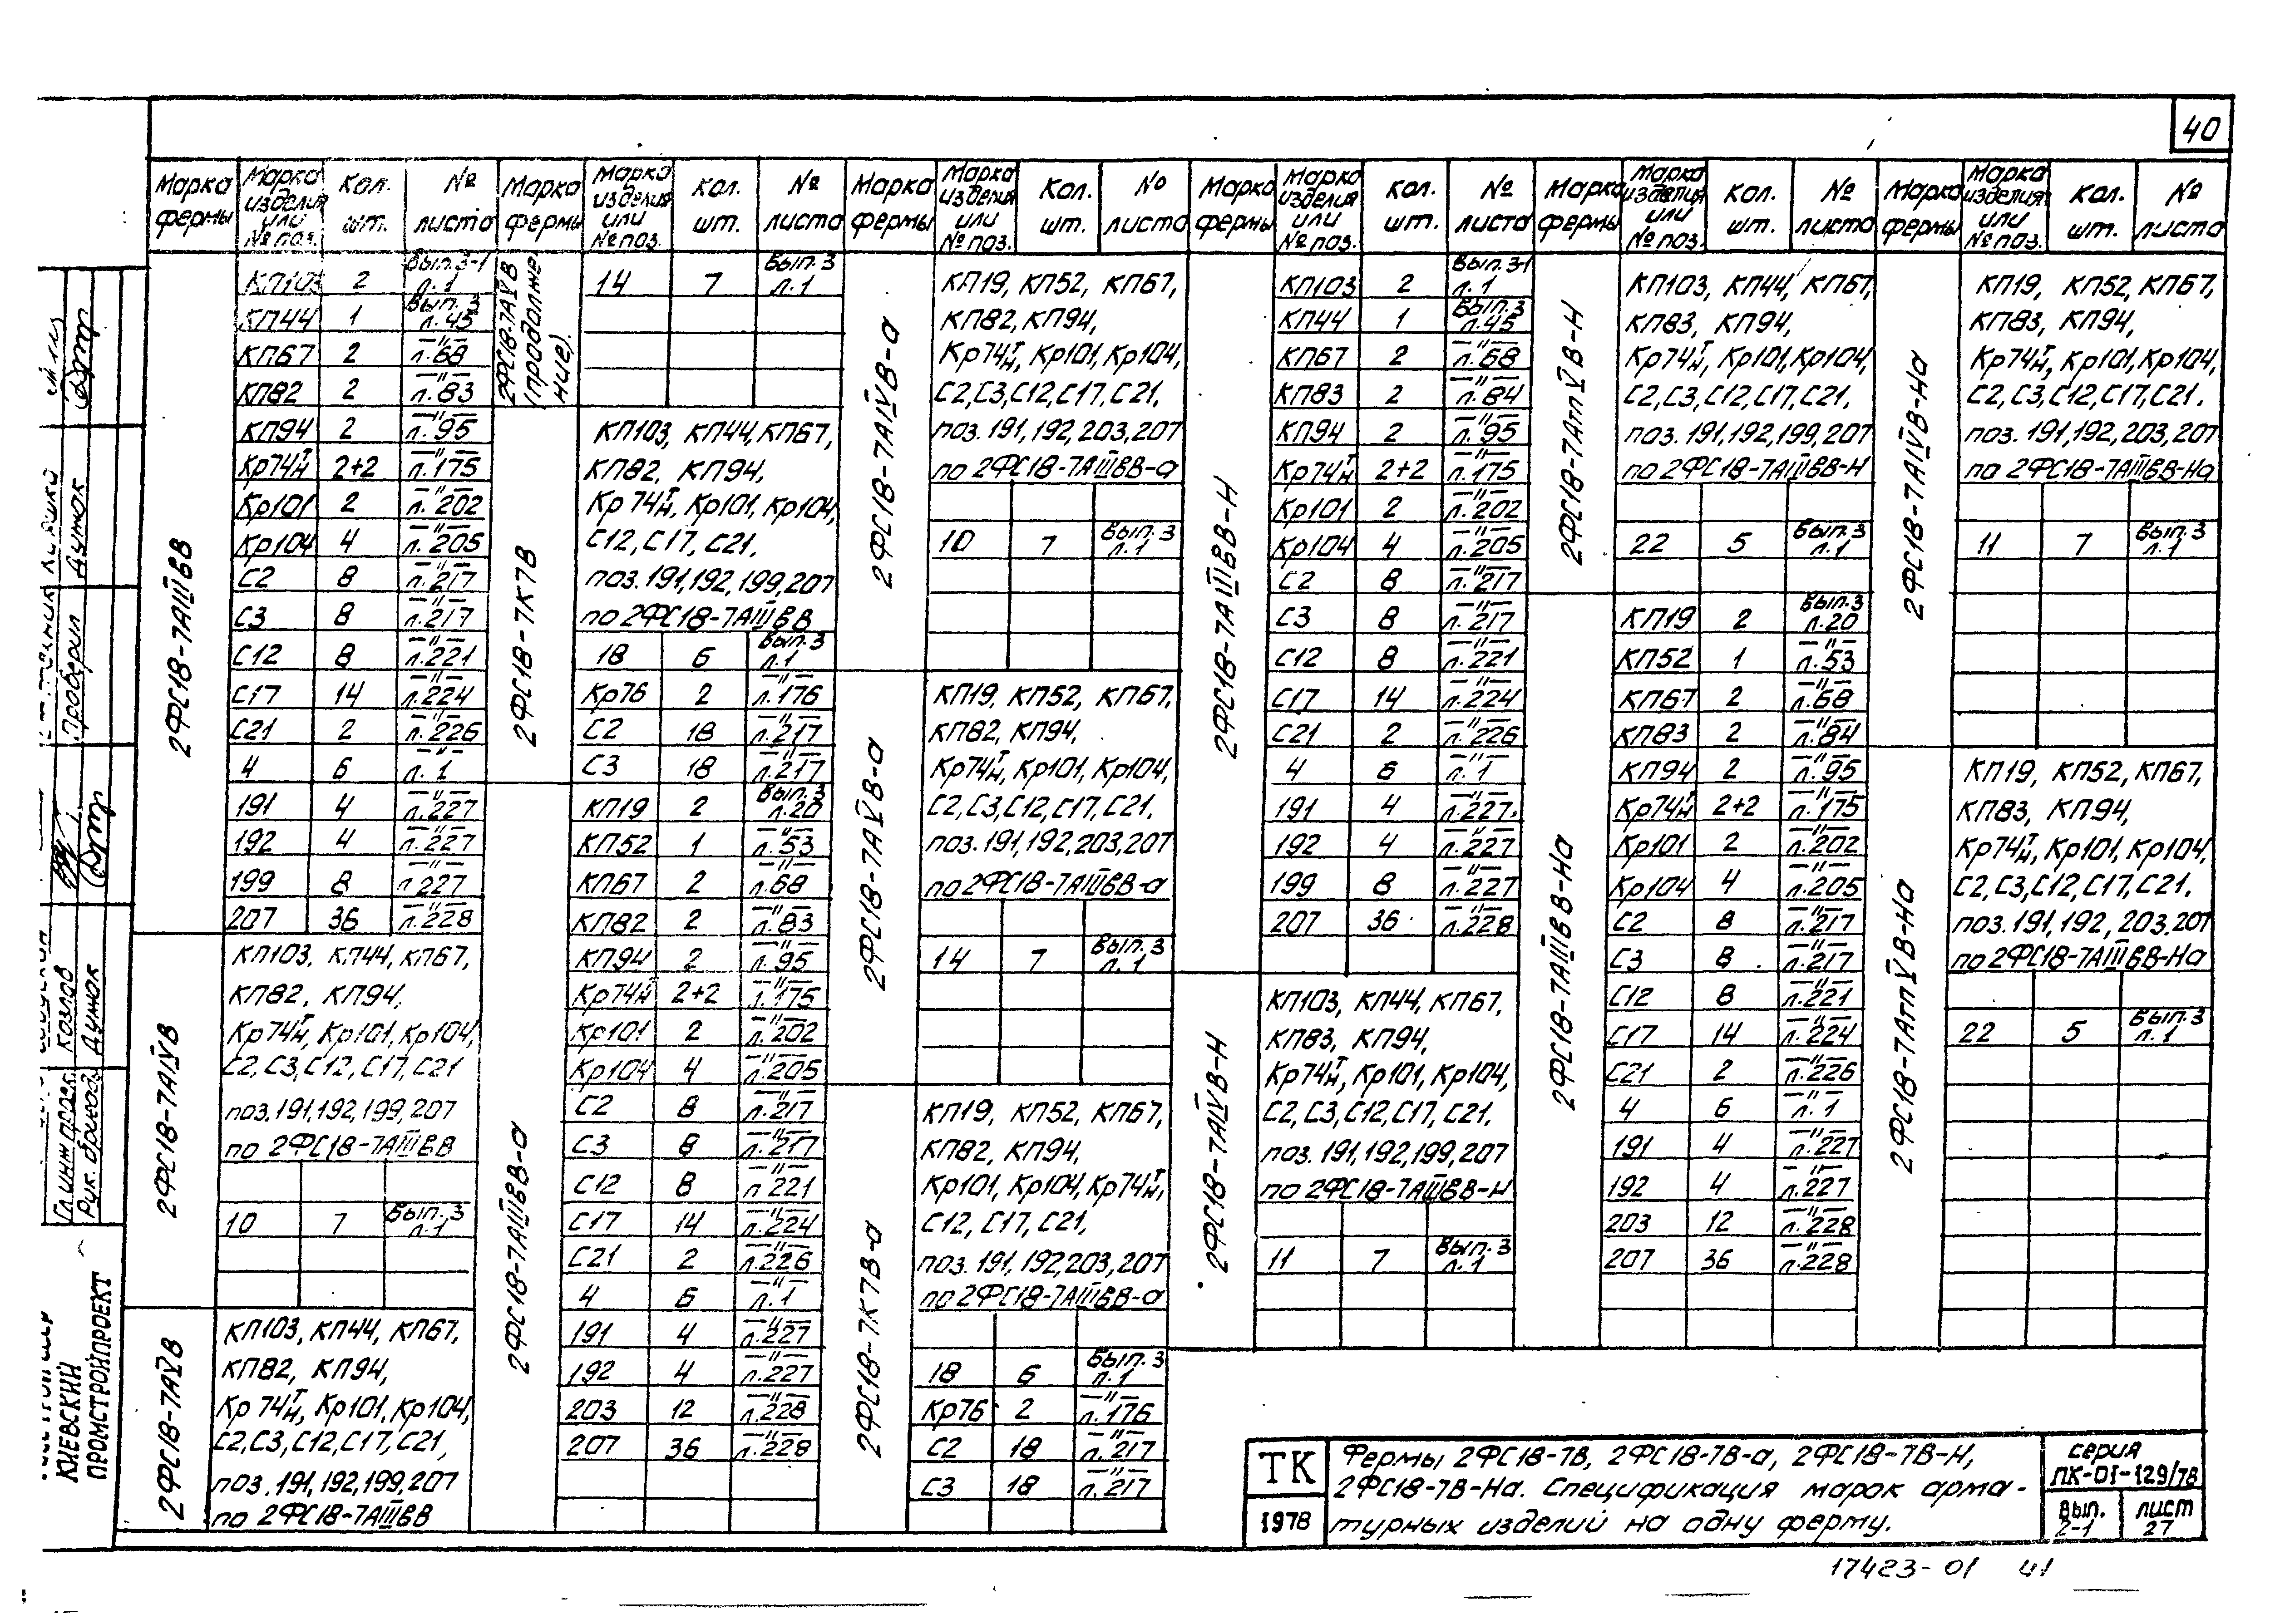 40
Марка фермы
Марка изделия или № поз.
Кол. шт.
№ листа
2ФС18-7АIIIВВ
КП103 2 Вып.3-1 л.1
КП44 1 Вып.3 л.45
КП67 2 —"— л.68
КП82 2 —"— л.83
КП94 2 —"— л.95
Кр74т/н 2+2 —"— л.175
Кр101 2 —"— л.202
Кр104 4 —"— л.205
С2 8 —"— л.217
С3 8 —"— л.217
С12 8 —"— л.221
С17 14 —"— л.224
С21 2 —"— л.226
4 6 —"— л.1
191 4 —"— л.227
192 4 —"— л.227
199 8 —"— л.227
207 36 —"— л.228
2ФС18-7АIVВ
КП103, КП44, КП67,
КП82, КП94,
Кр74т/н, Кр101, Кр104,
С2, С3, С12, С17, С21
поз. 191, 192, 199, 207
по 2ФС18-7АIIIВВ
10 7 Вып.3 л.1
2ФС18-7АVВ
КП103, КП44, КП67,
КП82, КП94,
Кр74т/н, Кр101, Кр104,
С2, С3, С12, С17, С21,
поз. 191, 192, 199, 207
по 2ФС18-7АIIIВВ
Марка фермы
Марка изделия или № поз.
Кол. шт.
№ листа
2ФС18-7АVВ (продолжение).
14 7 Вып.3 л.1
2ФС18-7К7В
КП103, КП44, КП67,
КП82, КП94,
Кр74т/н, Кр101, Кр104,
С12, С17, С21,
поз. 191, 192, 199, 207
по 2ФС18-7АIIIВВ
18 6 Вып.3 л.1
Кр76 2 —"— л.176
С2 18 —"— л.217
С3 18 —"— л.217
2ФС18-7АIIIВВ-а
КП19 2 Вып.3 л.20
КП52 1 —"— л.53
КП67 2 —"— л.68
КП82 2 —"— л.83
КП94 2 —"— л.95
Кр74т/н 2+2 —"— л.175
Кр101 2 —"— л.202
Кр104 4 —"— л.205
С2 8 —"— л.217
С3 8 —"— л.217
С12 8 —"— л.221
С17 14 —"— л.224
С21 2 —"— л.226
4 6 —"— л.1
191 4 —"— л.227
192 4 —"— л.227
203 12 —"— л.228
207 36 —"— л.228
Марка фермы
Марка изделия или № поз.
Кол. шт.
№ листа
2ФС18-7АIVВ-а
КП19, КП52, КП67,
КП82, КП94,
Кр74т/н, Кр101, Кр104,
С2, С3, С12, С17, С21,
поз. 191, 192, 203, 207
по 2ФС18-7АIIIВВ-а
10 7 Вып.3 л.1
2ФС18-7АVВ-а
КП19, КП52, КП67,
КП82, КП94,
Кр74т/н, Кр101, Кр104,
С2, С3, С12, С17, С21,
поз. 191, 192, 203, 207
по 2ФС18-7АIIIВВ-а
14 7 Вып.3 л.1
2ФС18-7К7В-а
КП19, КП52, КП67,
КП82, КП94,
Кр101, Кр104, Кр74т/н,
С12, С17, С21,
поз. 191, 192, 203, 207
по 2ФС18-7АIIIВВ-а
18 6 Вып.3 л.1
Кр76 2 —"— л.176
С2 18 —"— л.217
С3 18 —"— л.217
Марка фермы
Марка изделия или № поз.
Кол. шт.
№ листа
2ФС18-7АIIIВВ-Н
КП103 2 Вып.3-1 л.1
КП44 1 Вып.3 л.45
КП67 2 —"— л.68
КП83 2 —"— л.84
КП94 2 —"— л.95
Кр74т/н 2+2 —"— л.175
Кр101 2 —"— л.202
Кр104 4 —"— л.205
С2 8 —"— л.217
С3 8 —"— л.217
С12 8 —"— л.221
С17 14 —"— л.224
С21 2 —"— л.226
4 6 —"— л.1
191 4 —"— л.227
192 4 —"— л.227
199 8 —"— л.227
207 36 —"— л.228
2ФС18-7АIVВ-Н
КП103, КП44, КП67,
КП83, КП94,
Кр74т/н, Кр101, Кр104,
С2, С3, С12, С17, С21,
поз. 191, 192, 199, 207
по 2ФС18-7АIIIВВ-Н
11 7 Вып.3 л.1
Марка фермы
Марка изделия или № поз.
Кол. шт.
№ листа
2ФС18-7АтпVВ-Н
КП103, КП44, КП67,
КП83, КП94,
Кр74т/н, Кр101, Кр104,
С2, С3, С12, С17, С21,
поз. 191, 192, 199, 207
по 2ФС18-7АIIIВВ-Н
22 5 Вып.3 л.1
2ФС18-7АIIIВВ-На
КП19 2 Вып.3 л.20
КП52 1 —"— л.53
КП67 2 —"— л.68
КП83 2 —"— л.84
КП94 2 —"— л.95
Кр74т/н 2+2 —"— л.175
Кр101 2 —"— л.202
Кр104 4 —"— л.205
С2 8 —"— л.217
С3 8 —"— л.217
С12 8 —"— л.221
С17 14 —"— л.224
С21 2 —"— л.226
4 6 —"— л.1
191 4 —"— л.227
192 4 —"— л.227
203 12 —"— л.228
207 36 —"— л.228
Марка фермы
Марка изделия или № поз.
Кол. шт.
№ листа
2ФС18-7АIVВ-На
КП19, КП52, КП67,
КП83, КП94,
Кр74т/н, Кр101, Кр104,
С2, С3, С12, С17, С21,
поз. 191, 192, 203, 207
по 2ФС18-7АIIIВВ-На
11 7 Вып.3 л.1
2ФС18-7АтпVВ-На
КП19, КП52, КП67,
КП83, КП94,
Кр74т/н, Кр101, Кр104,
С2, С3, С12, С17, С21,
поз. 191, 192, 203, 207
по 2ФС18-7АIIIВВ-На
22 5 Вып.3 л.1
Проверил Дуток
Гл. инж. прек. Козлов
Рук. бригады Дуток
КИЕВСКИЙ
ПРОМСТРОЙПРОЕКТ
ТК
1978
Фермы 2ФС18-7В, 2ФС18-7В-а, 2ФС18-7В-Н,
2ФС18-7В-На. Спецификация марок арма-
турных изделий на одну ферму.
серия
ПК-01-129/78
Вып. 2-1
лист 27
17423-01 41